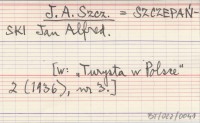 J. A. Szcz. = SZCZEPAŃ-
SKI Jan Alfred.
[w: „Turysta w Polsce"
2 (1936), nr 3.]